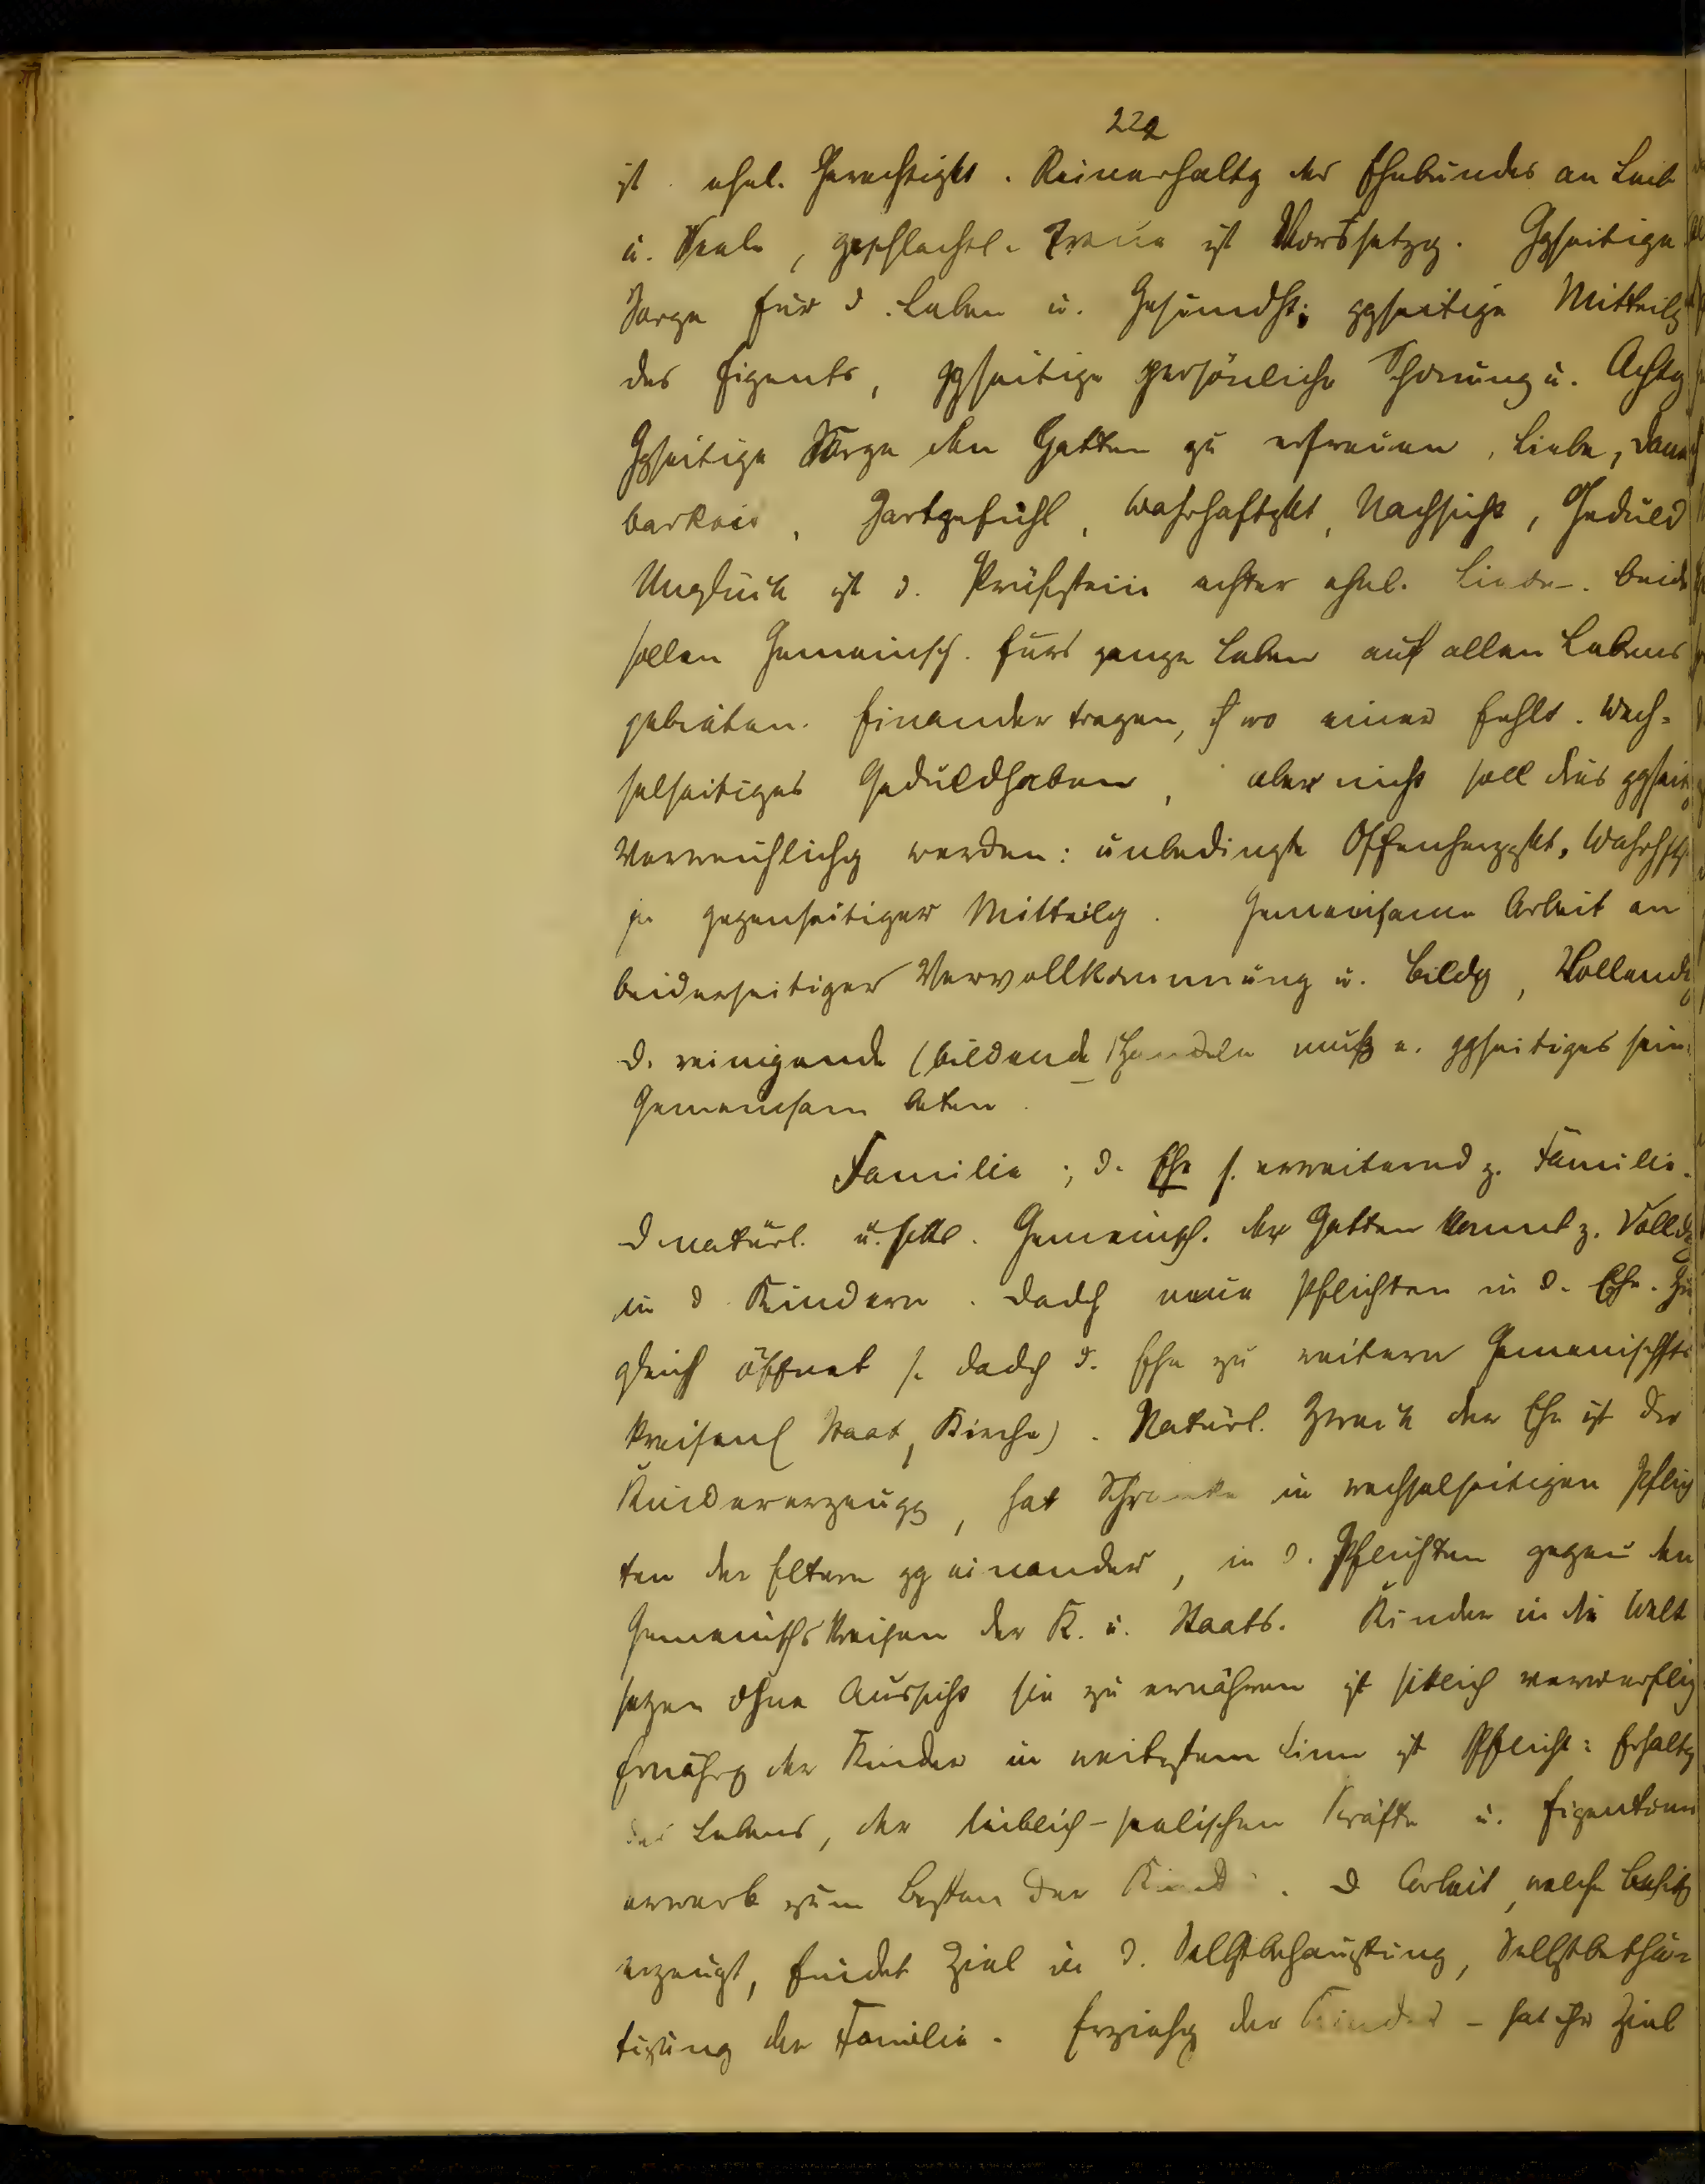 222
ist ehel. Gerechtigkt. Reinerhaltg des Ehebundes an Leib
u. Seele, geschlechtl. Treue ist Vorssetzg. Ggseitige
Sorge für d. Leben u. Gesundht; ggseitige Mitteilg
des Eigents, ggseitige persönliche Schonung u. Achtg
Ggseitige Sorge den Gatten zu erfreuen, Liebe, Dank
barkeit, Zartgefühl, Wahrhaftgkt, Nachsicht, Geduld
Unglück ist d. Prüfstein echter ehel. Liebe. Beide
sollen Gemeinsch. fürs ganze Leben auf allen Lebens
gebieten. Einander tragen, wo einer fehlt. Wech-
selseitiges Geduldhaben, aber nicht soll dies ggseit
Verweichlichg werden: unbedingte Offenherzgkt, Wahrhftg
gegenseitiger Mitteilg. Gemeinsame Arbeit an
beiderseitiger Vervollkommnung u. Bildg, Vollendg
d. reinigende (bildende) Handeln muß e. ggseitiges sein.
Gemeinsam beten.
Familie; d. Ehe s. erweiternd z. Familie.
D natürl. u. sittl. Gemeinsch. der Gatten kommt z. Volldg
in d Kindern. Dadch neue Pflichten in d. Ehe. Zu
gleich öffnet s. dadch d. Ehe zu weitern Gemeinschfts
kreisen (Staat, Kirche). Natürl. Zweck der Ehe ist die
Kindererzeugg, hat Schranke in wechselseitigen Pflich
ten der Eltern gg einander, in d. Pflichten gegen den
Gemeinschskreisen der K. u. Staats. Kinder in die Welt
setzen ohne Aussicht sie zu ernähren ist sittlich verwerflich
Ernährg der Kinder in weitestem Sinn ist Pflicht: Erhaltg
des Lebens, der leiblich-seelischen Kräfte u. Eigentum
erwerb zum Besten der Kinder. D Arbeit, welche Besitz
erzeugt, findet Ziel in d. Selbstbehauptung, Selbstbethä-
tigung der Familie. Erziehg der Kinder - hat ihr Ziel